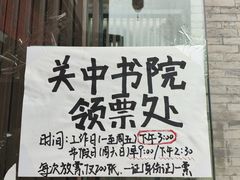 关中书院
领票处
时间:工作日(一至周五)下午3:00
节假日(周六日)早9:00/下午2:30
每次放票仅200张,一证(身份证)一票